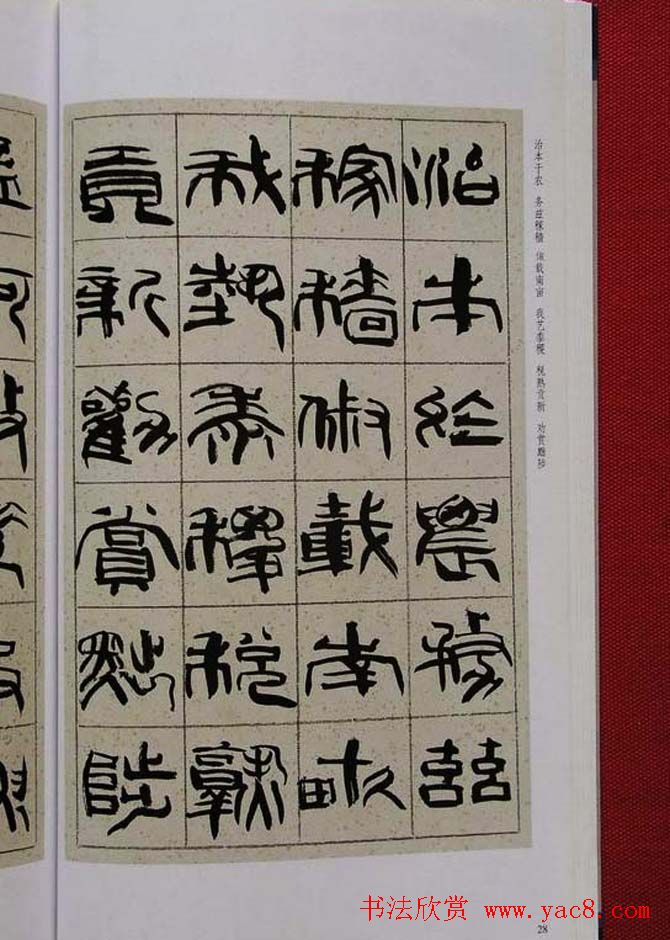 治本於農務茲
稼穡俶載南畝
我藝黍稷稅熟
貢新勸賞黜陟
治本于农 务兹稼穑 俶载南亩 我艺黍稷 税熟贡新 劝赏黜陟
28
书法欣赏 www.yac8.com